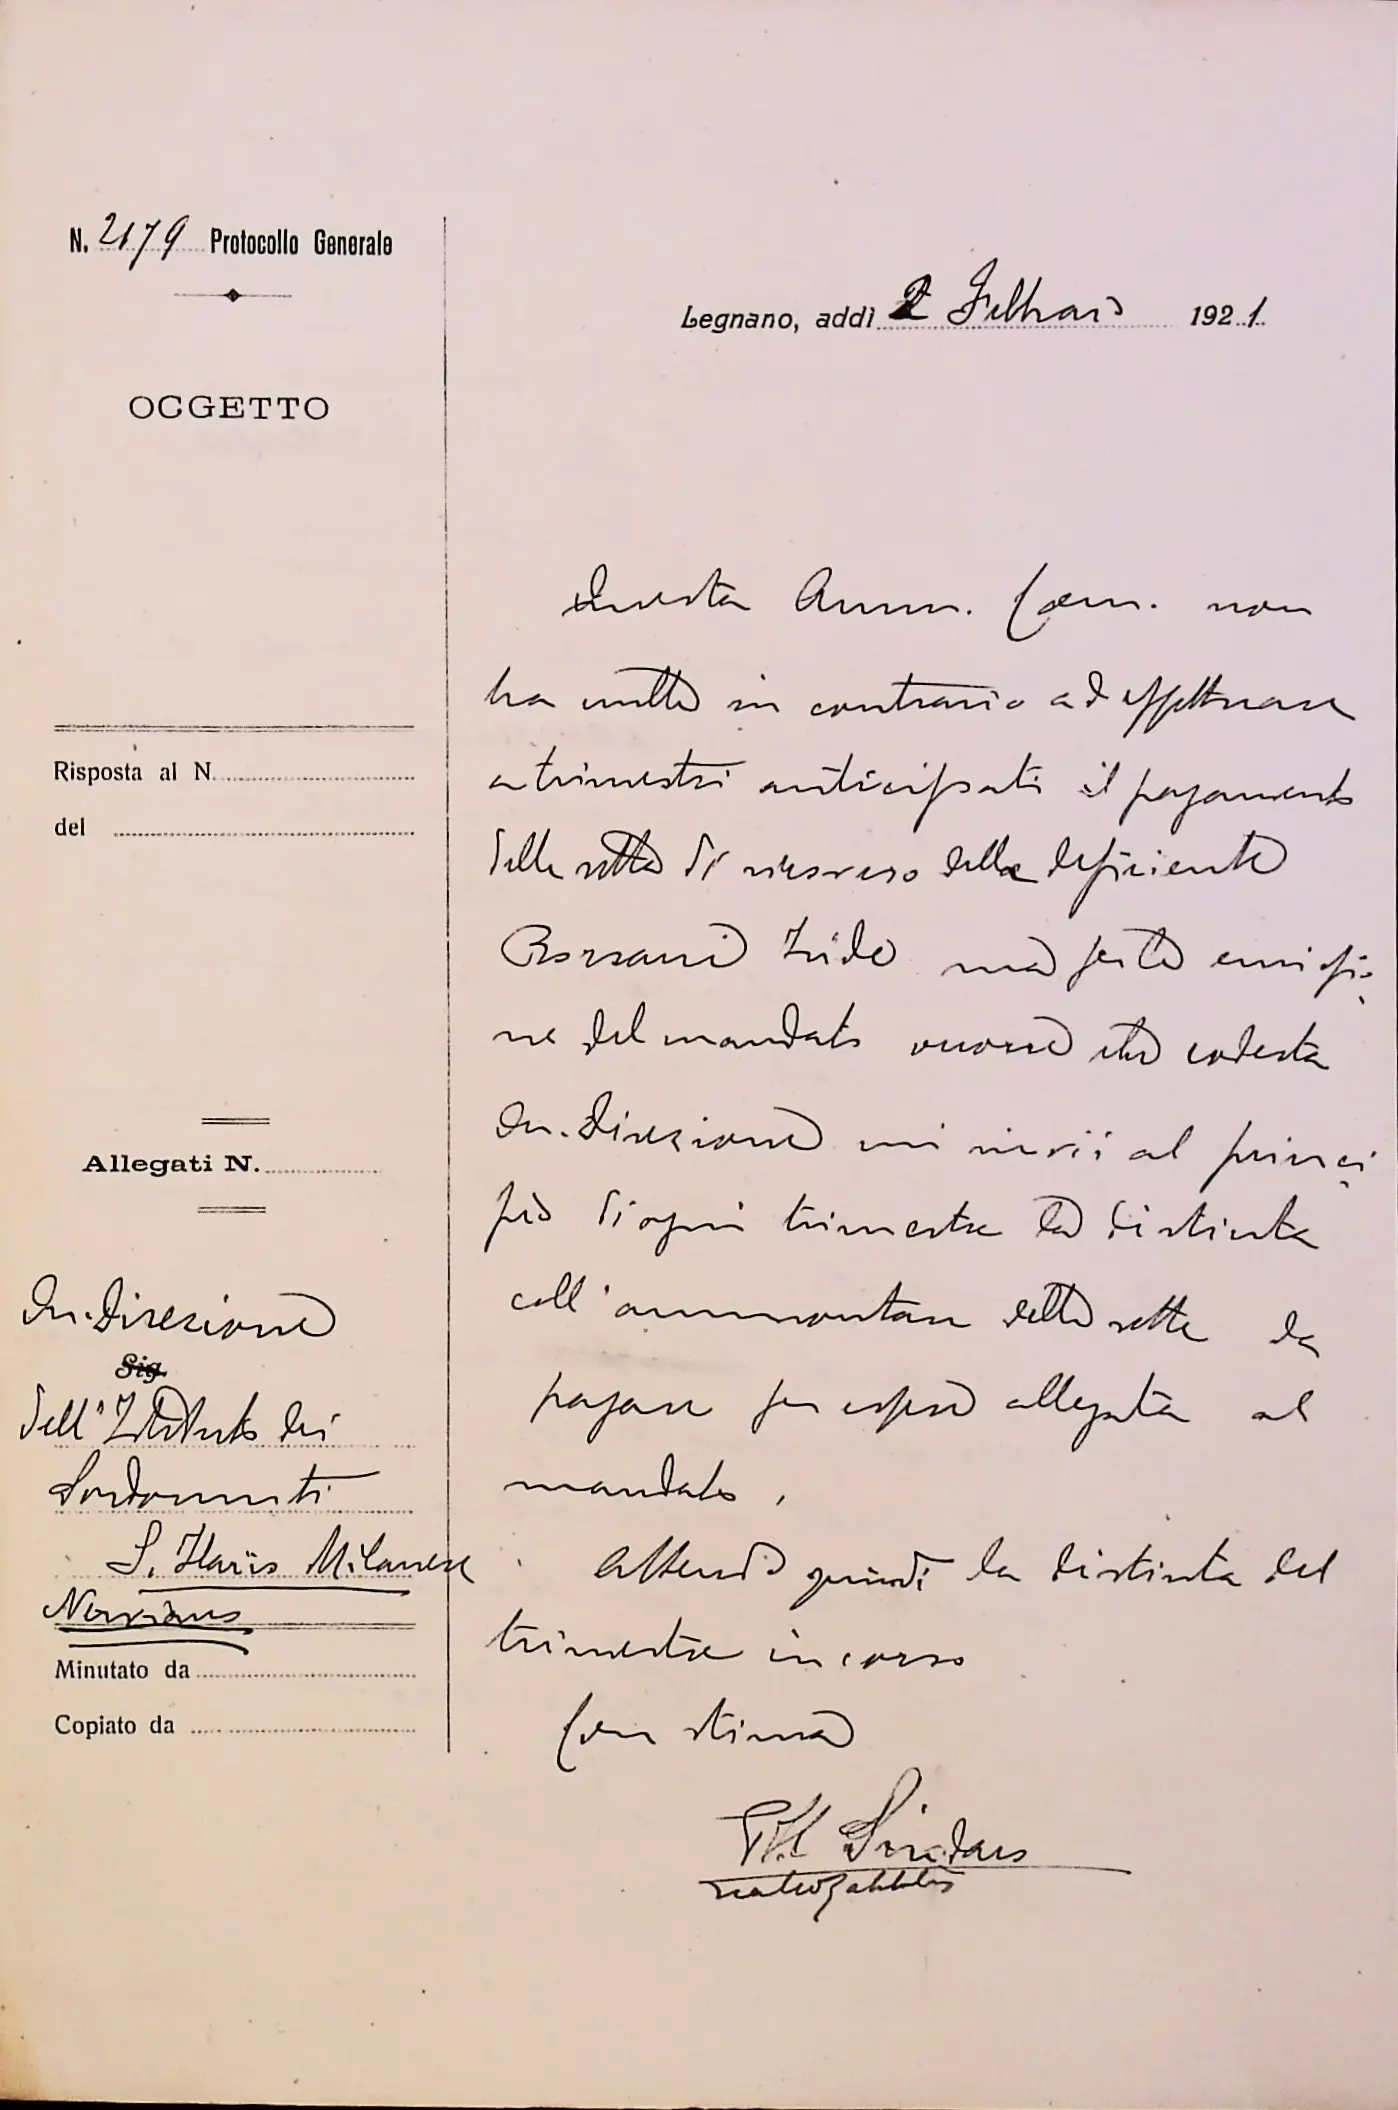 N. 2179 Protocollo Generale
Legnano, addì 2 Febbraio 1921.
OGGETTO
Risposta al N.
del
Allegati N.
On. Direzione
Sig.
dell'Istituto dei
Sordomuti
S. Ilario Milanese
Nerviano
Minutato da
Copiato da
Questa Amm. Com. non
ha nulla in contrario ad effettuare
a trimestri anticipati il pagamento
delle rette di ricovero della deficiente
Borsani Ilide ma per la emissio-
ne del mandato occorre che codesta
On. Direzione mi invii al princi
pio di ogni trimestre la distinta
coll'ammontare delle rette da
pagare per essere allegata al
mandato.
Attendo quindi la distinta del
trimestre in corso
Con stima
Il Sindaco